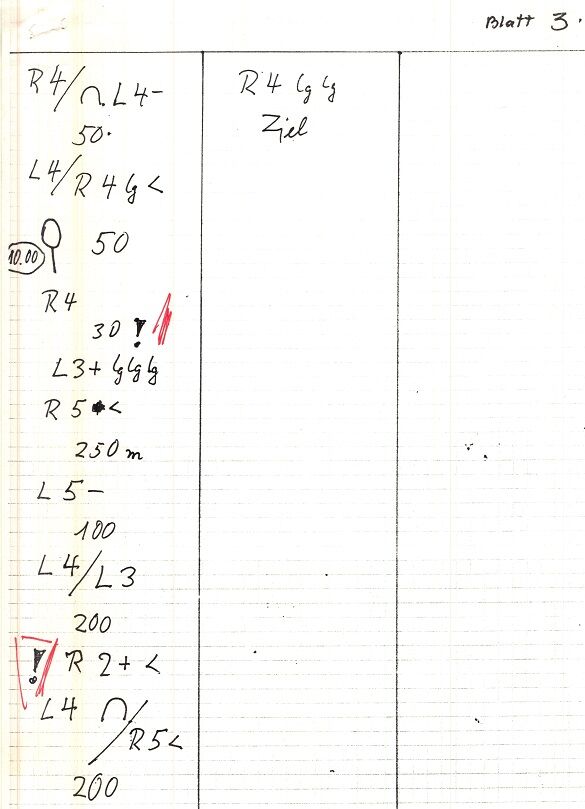 Blatt 3.
R4/∩. L4-
50.
L4/R4 lg <
10.00 50
R4
30 !
L3+ lg lg lg
R 5 <
250 m
L 5 -
100
L4/L3
200
! R 2+ <
L4 ∩/R5<
200
R 4 lg lg
Ziel